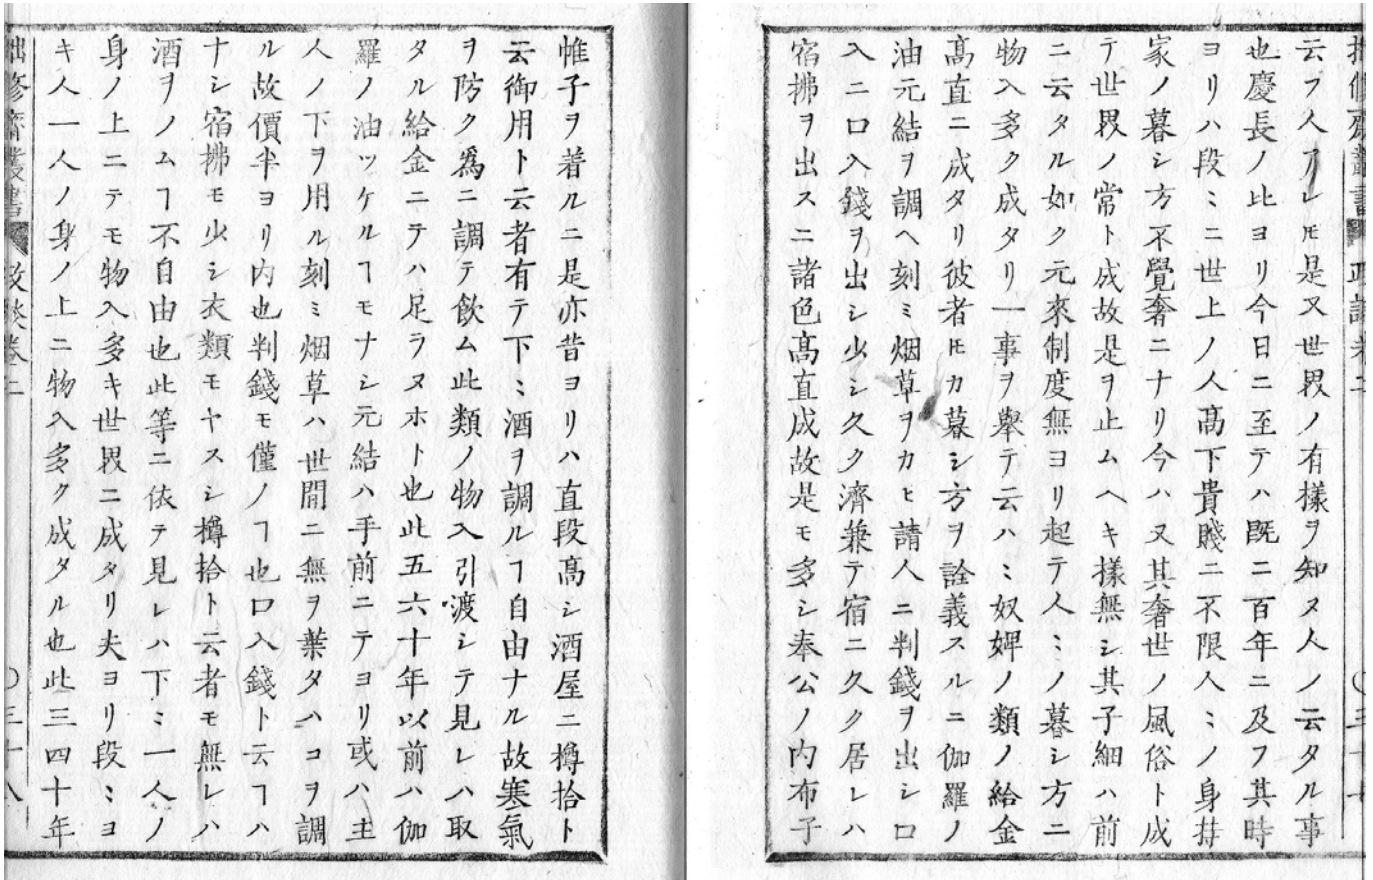 云フ人アレ𪜈是又世界ノ有様ヲ知ヌ人ノ云タル事
也慶長ノ比ヨリ今日ニ至テハ既ニ百年ニ及フ其時
ヨリハ段〻ニ世上ノ人髙下貴賤ニ不限人〻ノ身持
家ノ暮シ方不覺奢ニナリ今ハ又其奢世ノ風俗ト成
テ世界ノ常ト成故是ヲ止ムヘキ様無シ其子細ハ前
ニ云タル如ク元來制度無ヨリ起テ人〻ノ暮シ方ニ
物入多ク成タリ一事ヲ舉テ云ハヽ奴婢ノ類ノ給金
髙直ニ成タリ彼者𪜈カ暮シ方ヲ詮義スルニ伽羅ノ
油元結ヲ調ヘ刻ミ烟草ヲカヒ請人ニ判錢ヲ出シ口
入ニ口入錢ヲ出シ少シ久ク濟兼テ宿ニ久ク居レハ
宿拂ヲ出スニ諸色髙直成故是モ多シ奉公ノ内布子
帷子ヲ着ルニ是亦昔ヨリハ直段髙シ酒屋ニ樽拾ト
云御用ト云者有テ下〻酒ヲ調ルヿ自由ナル故寒氣
ヲ防ク爲ニ調テ飲ム此類ノ物入引渡シテ見レハ取
タル給金ニテハ足ラヌホト也此五六十年以前ハ伽
羅ノ油ツケルヿモナシ元結ハ手前ニテヨリ或ハ主
人ノ下ヲ用ル刻ミ烟草ハ世間ニ無ヲ葉タハコヲ調
ル故價半ヨリ内也判錢モ僅ノヿ也口入錢ト云ヿハ
ナシ宿拂モ少シ衣類モヤスシ樽拾ト云者モ無レハ
酒ヲノムヿ不自由也此等ニ依テ見レハ下〻一人ノ
身ノ上ニテモ物入多キ世界ニ成タリ夫ヨリ段〻ヨ
キ人一人ノ身ノ上ニ物入多ク成タル也此三四十年
政談卷二
〇三十八